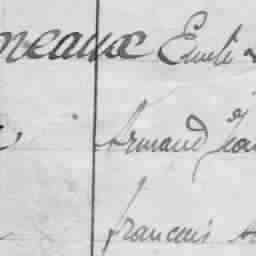 meaux Emile
Armand Jea
francois